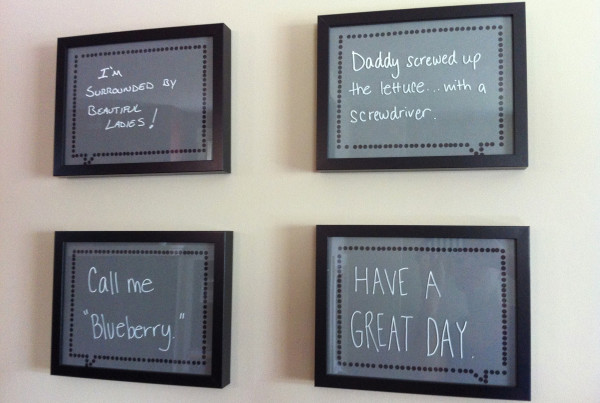 I'M
SURROUNDED BY
BEAUTIFUL
LADIES!
Daddy screwed up
the lettuce... with a
screwdriver.
Call me
"Blueberry."
HAVE A
GREAT DAY.